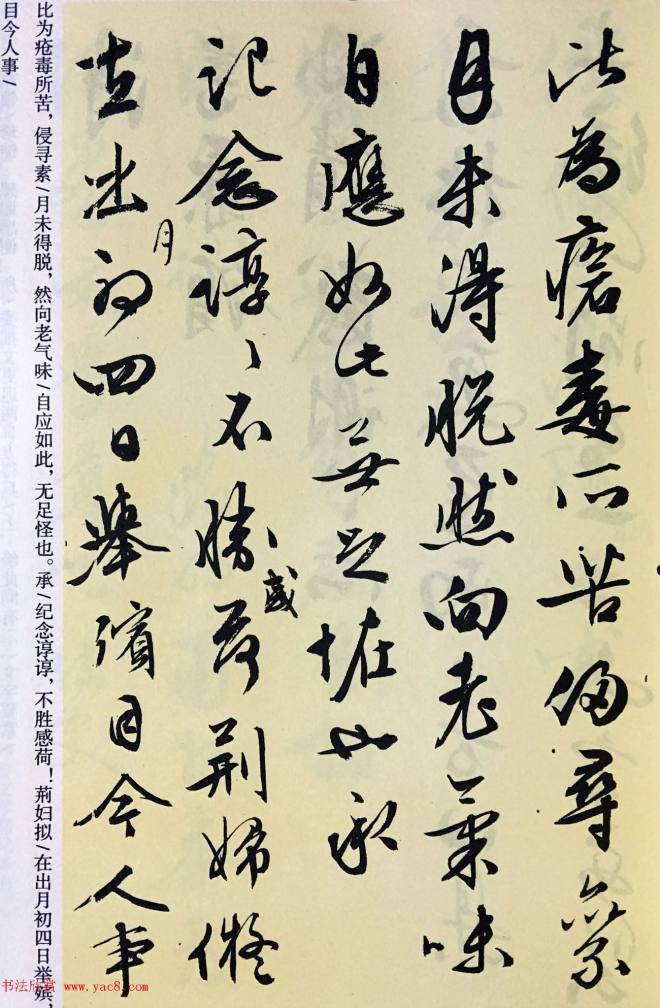 比為瘡毒所苦侵尋累
月未得脱然向老氣味
自應如此無足怪也承
記念諄〻不勝感荷荆婦儗
在出月初四日舉殯目今人事
比为疮毒所苦，侵寻素/月未得脱，然向老气味/自应如此，无足怪也。承/纪念谆谆，不胜感荷！荆妇拟/在出月初四日举殡，
目今人事/
书法欣赏 www.yac8.com